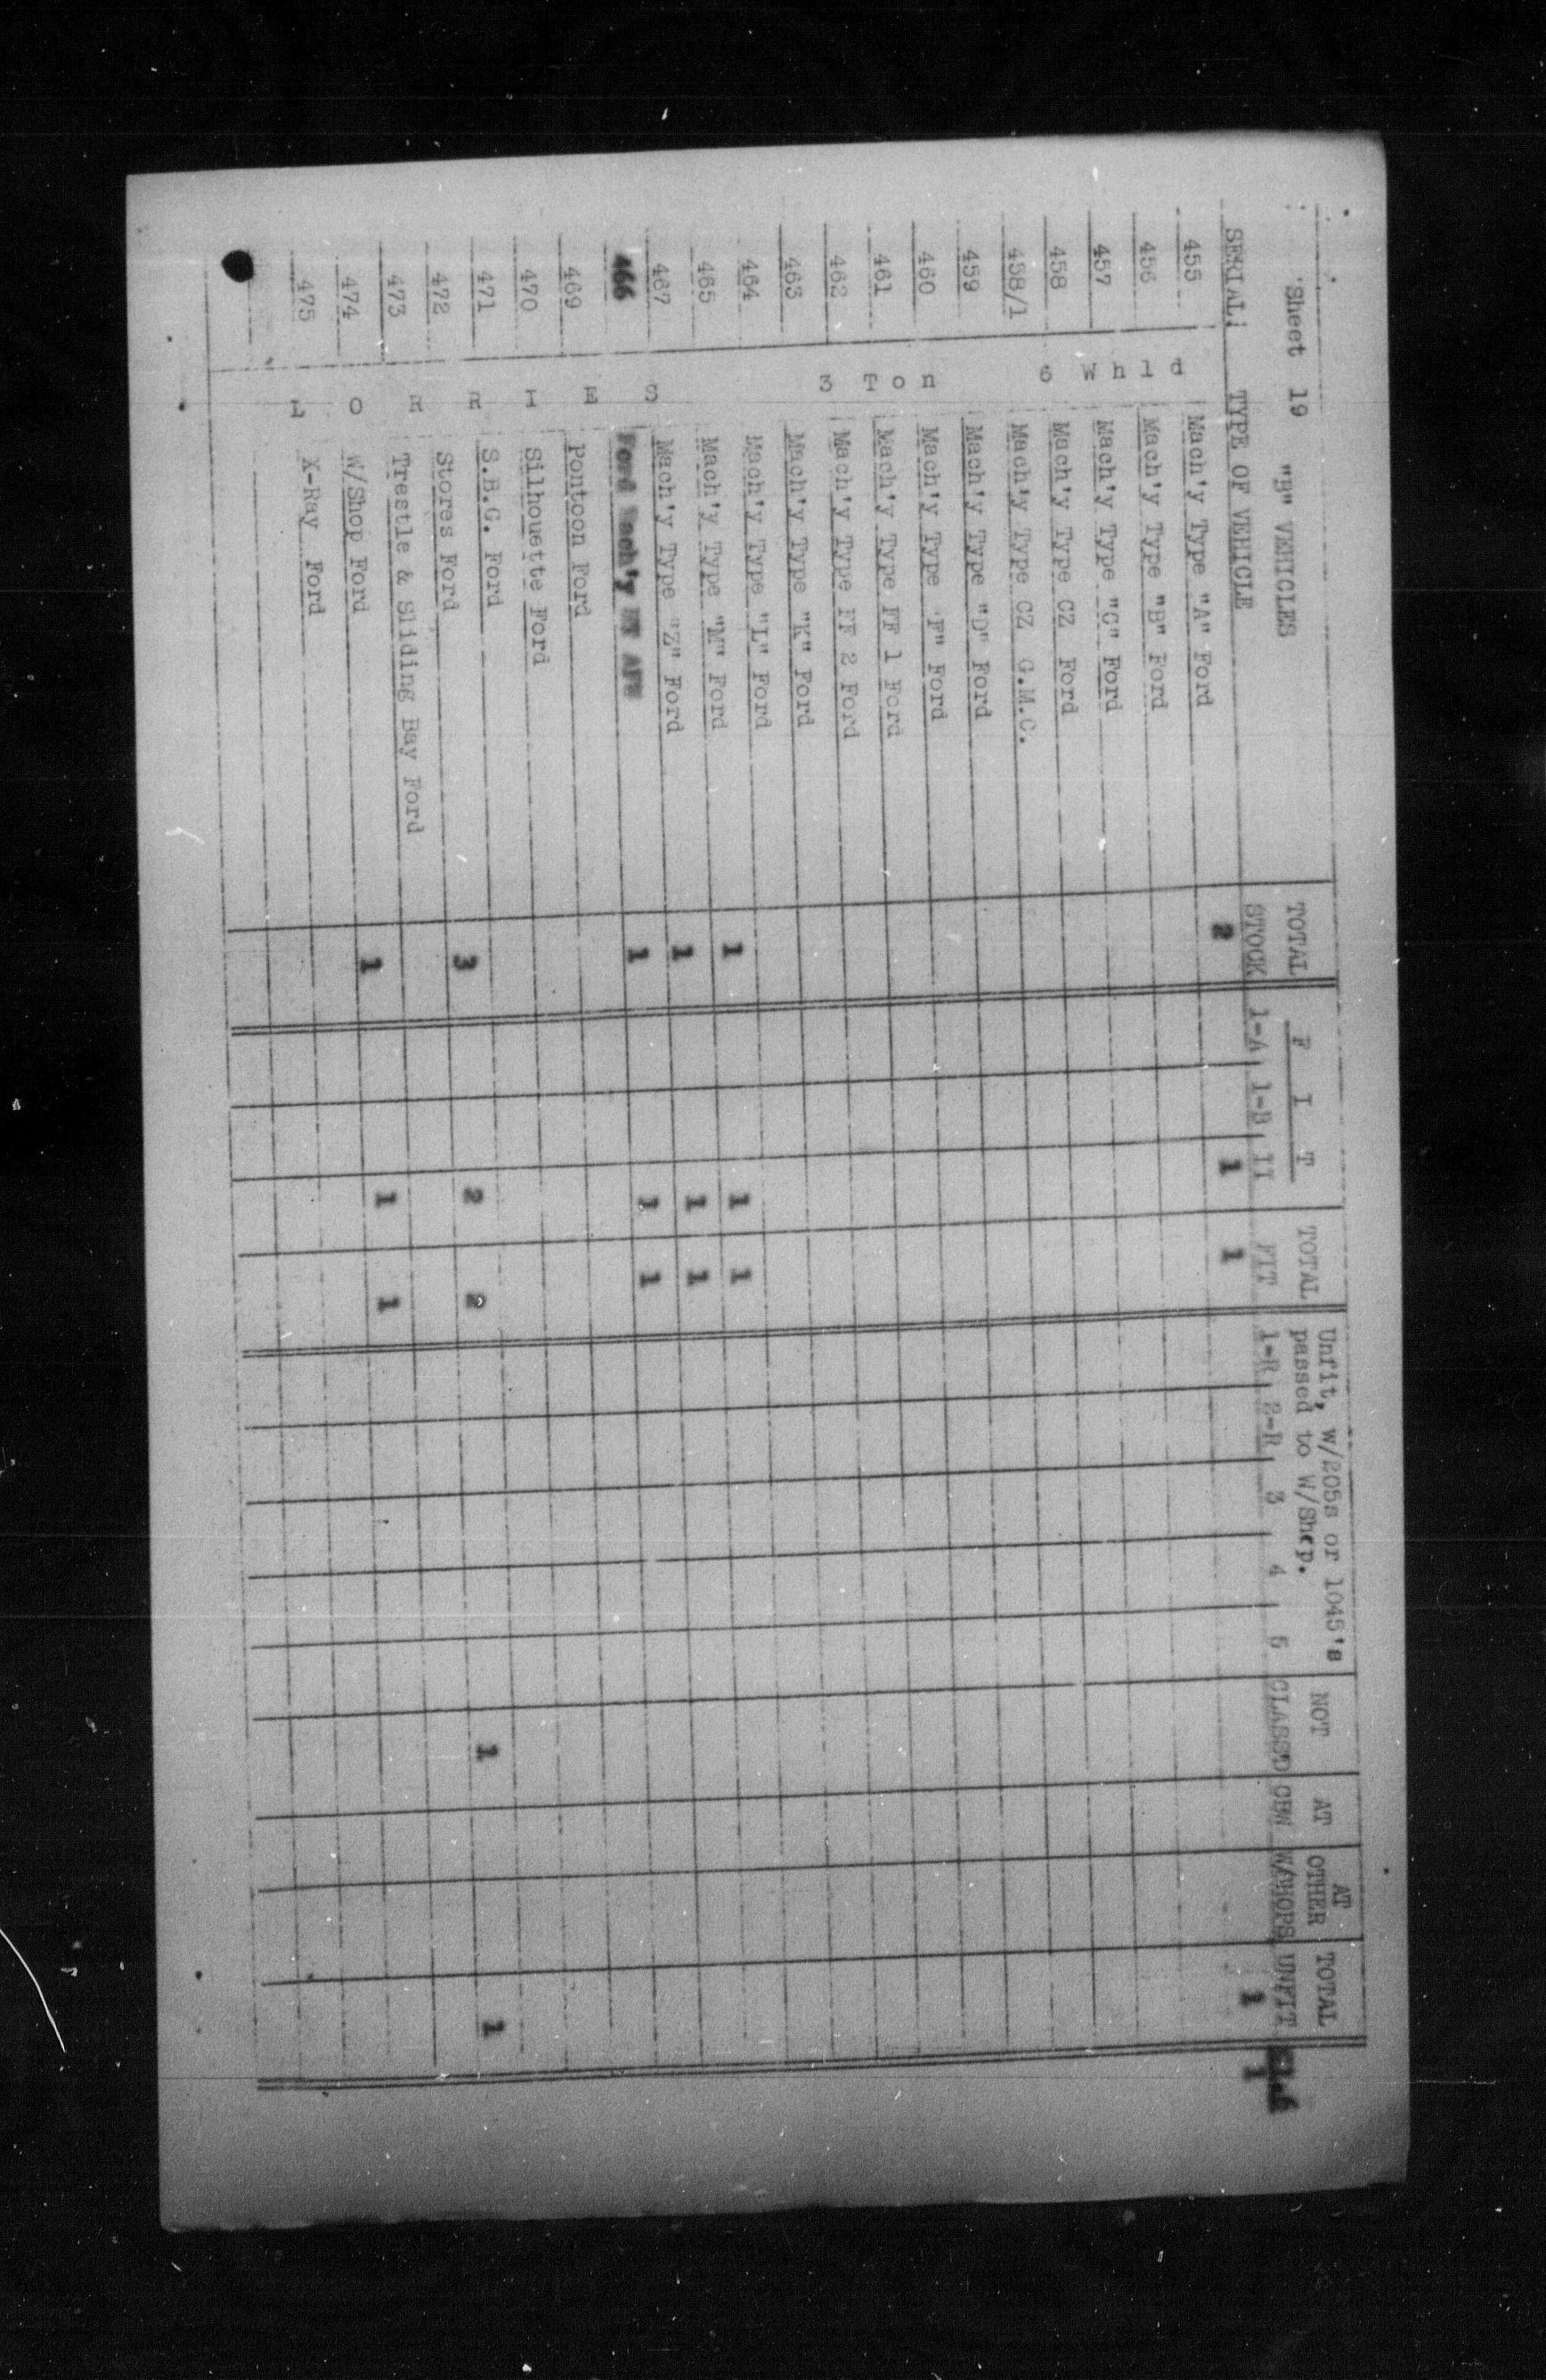 Sheet 19 "B" VEHICLES TOTAL F I T TOTAL Unfit, w/205s or 1045's passed to W/Shop. NOT AT AT OTHER TOTAL
SERIAL: TYPE OF VEHICLE STOCK 1-A 1-B II FIT 1-R 2-R 3 4 5 CLASSD CBW W/SHOPS UNFIT Cl.6
455 Mach'y Type "A" Ford 2 1 1 1 1
456 Mach'y Type "B" Ford
457 Mach'y Type "C" Ford
458 Mach'y Type CZ Ford
458/1 Mach'y Type CZ G.M.C.
459 Mach'y Type "D" Ford
460 Mach'y Type "F" Ford
461 Mach'y Type FF 1 Ford
462 Mach'y Type FF 2 Ford
463 Mach'y Type "K" Ford
464 Mach'y Type "L" Ford
465 Mach'y Type "M" Ford 1 1 1
467 Mach'y Type "Z" Ford 1 1 1
466 Ford Mach'y 1 1 1
469 Pontoon Ford
470 Silhouette Ford
471 S.B.G. Ford
472 Stores Ford 3 2 2 1 1
473 Trestle & Sliding Bay Ford
474 W/Shop Ford 1 1 1
475 X-Ray Ford
LORRIES 3 Ton 6 Whld